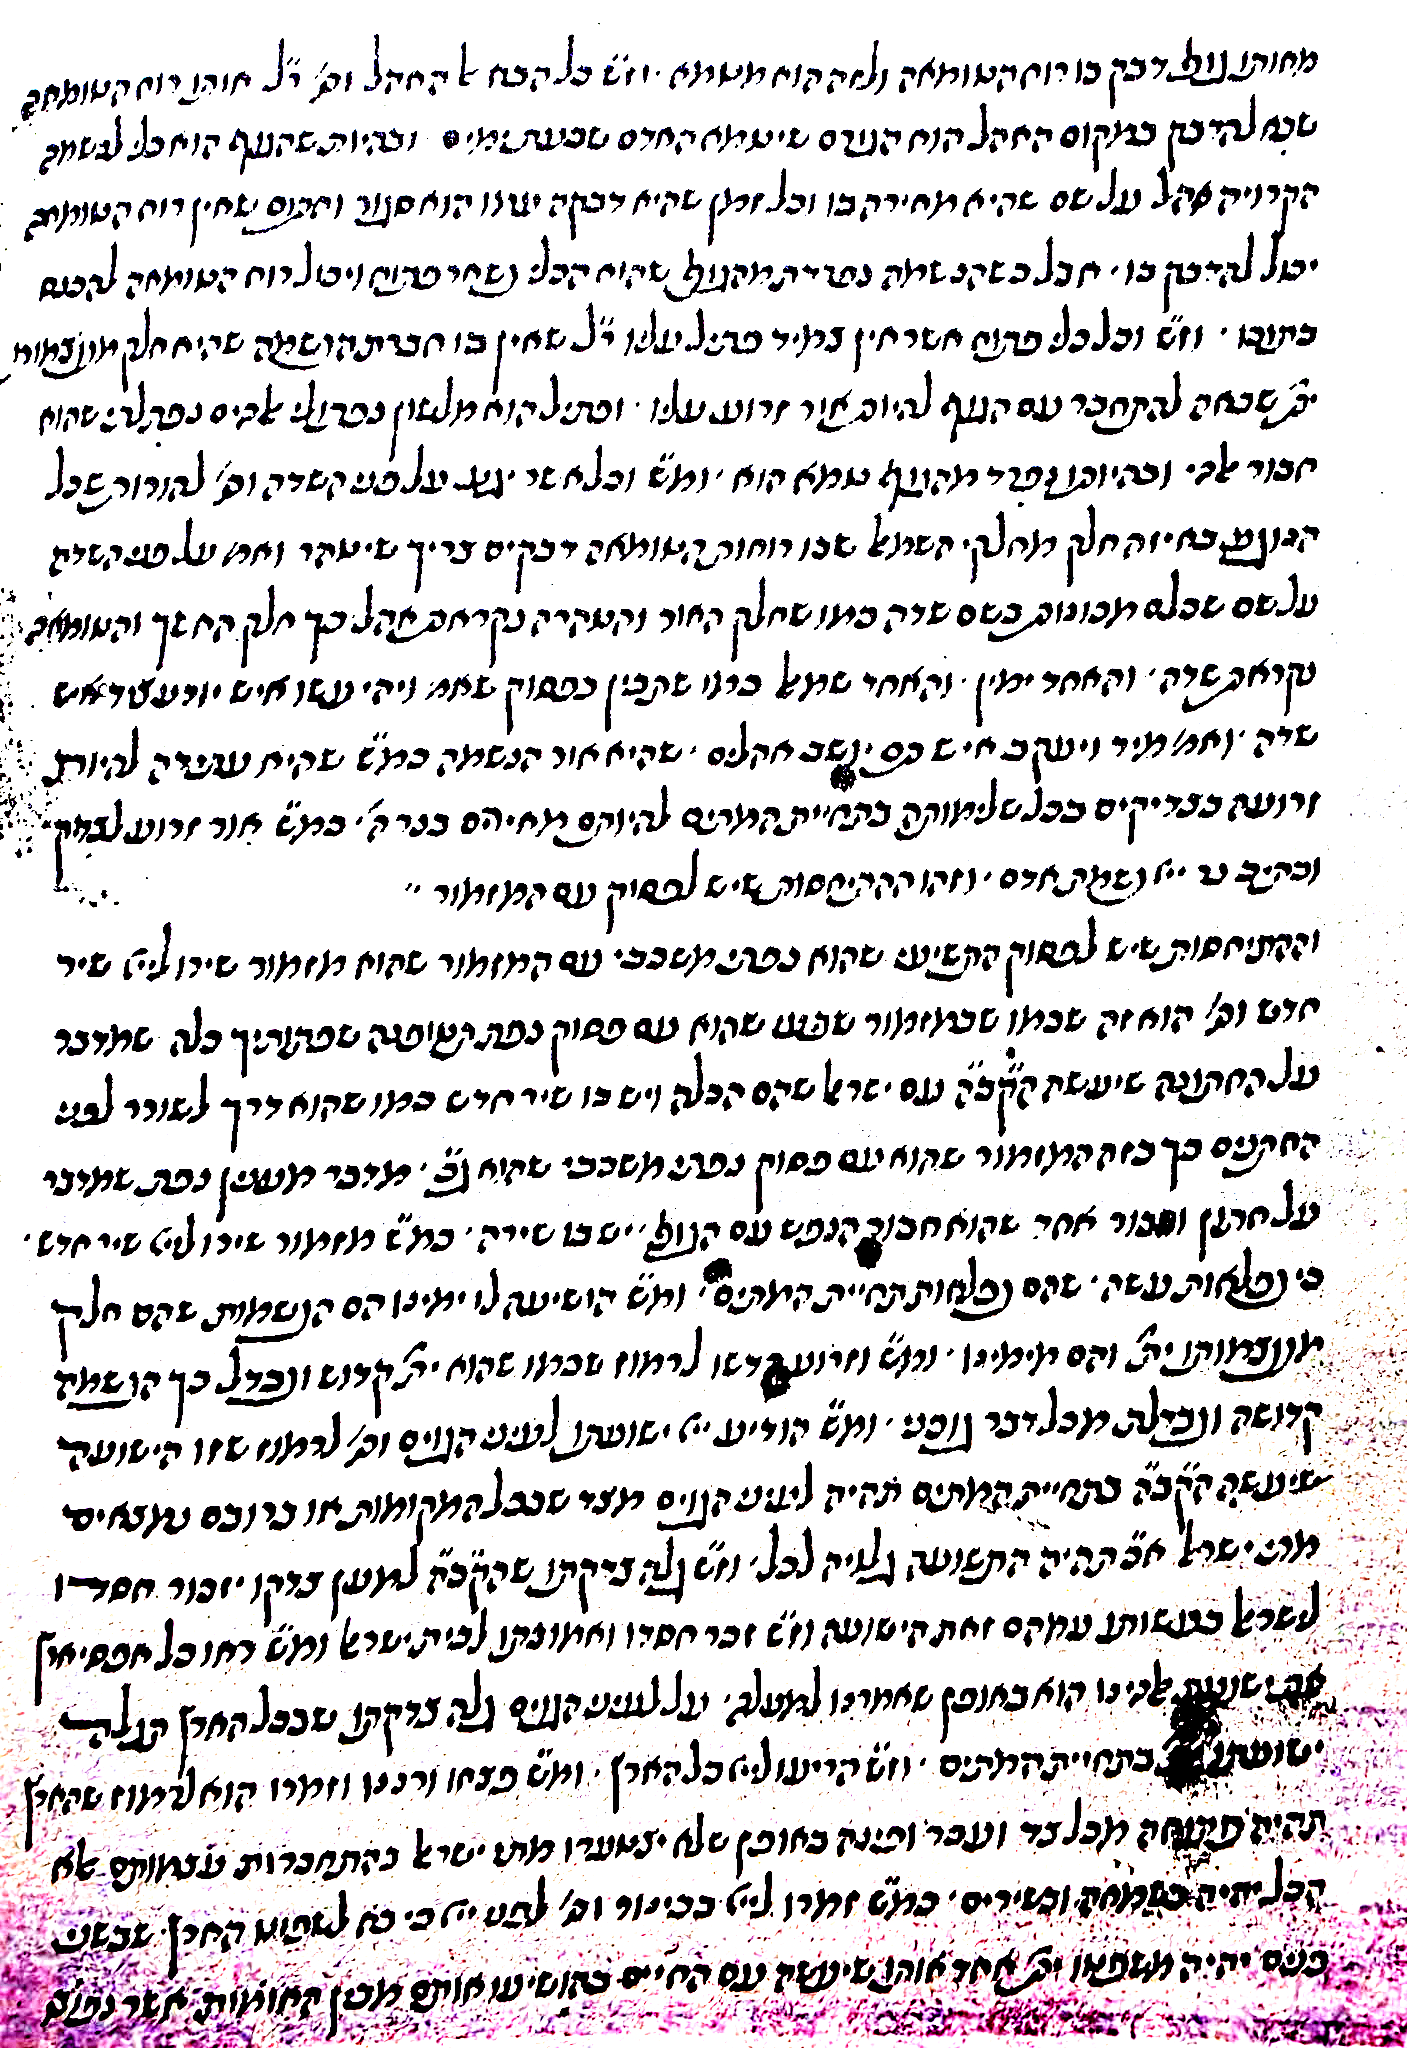 מאותו גוף דבק בו רוח הטומאה ולזה הוא מטמא · וז״ש כל הבא אל האהל וכו׳ ר״ל אותו רוח הטומאה
שבא להדבק במקום האהל הוא הגורם שיטמא האדם שבעת ימים וכהיות שהגוף הוא כלי לנשמה
הקרויה אהל על שם שהיא מאירה בו וכל זמן שהיא דבקה עמו הוא סגור וחתום שאין רוח הטומאה
יכול להדבק בו · אבל כשהנשמה נפרדת מהגוף שהוא הכלי נשאר פתוח ויכול רוח הטומאה להכנס
בתוכו · וז״ש וכל כלי פתוח אשר אין צמיד פתיל עליו ר״ל שאין בו חברת הנשמה שהיא חלק מעצמותו
ית׳ שבאה להתחבר עם הגוף להיות אור זרוע עליו · ופתיל הוא מלשון נפתולי אלהים נפתלתי שהוא
חבור אלהי · ובהיותו נפרד מהגוף טמא הוא · ומ״ש וכל אשר יגע על פני השדה וכו׳ להורות שכל
הנוגע באיזה חלק מחלקי השמאל שבו רוחות הטומאה דבקים צריך שיטהר ואמ׳ על פני השדה
על שם שכלם מכונים בשם שדה כמו שחלק האור והטהרה נקראת אהל כך חלק החשך והטומאה
נקראת שדה · והאחד ימין · והאחד שמאל כמו שתבין בפסוק שאמ׳ ויהי עשו איש יודע ציד איש
שדה · ואמ׳ מיד ויעקב איש תם יושב אהלים · שהיא אור הנשמה כמ״ש שהיא עתידה להיות
זרועה בצדיקים בכל שלימותה בתחיית המתים להיותם מאירים כנר ה׳ · כמ״ש אור זרוע לצדיק
וכתיב נר ייי נשמת אדם · וזהו ההתיחסות שיש לפסוק עם המזמור ״
וההתיחסות שיש לפסוק התשיעי שהוא נפתי משכבי עם המזמור שהוא מזמור שירו לייי שיר
חדש וכו׳ הוא זה שכמו שבמזמור שבעי שהוא עם פסוק נפת תטופנה שפתותיך כלה שמדבר
על החתונה שיעשה הקב״ה עם ישראל שהם הכלה ויש בו שיר חדש כמו שהוא דרך לשורר לפני
החתנים כך בזה המזמור שהוא עם פסוק נפתי משכבי שהוא ג״כ · מדבר מענין נפת שמדבר
על חתון וחבור אחר שהוא חבור הנפש עם הגוף · יש בו שירה · כמ״ש מזמור שירו לייי שיר חדש ·
כי נפלאות עשה · שהם נפלאות תחיית המתים · ומ״ש הושיעה לו ימינו הם הנשמות שהם חלק
מעצמותו ית׳ והם מימינו · ומ״ש וזרוע קדשו לרמוז שכמו שהוא ית׳ קדוש ונבדל כך הנשמה
קדושה ונבדלת מכל דבר גופני · ומ״ש הודיע ייי ישועתו לעיני הגוים וכו׳ לרמוז שזו הישועה
שיעשה הקב״ה בתחיית המתים תהיה לעיני הגוים מצד שבכל המקומות או ברובם נמצאים
מתי ישראל א״כ תהיה התשועה גלויה לכל · וז״ש גלה צדקתו שהקב״ה למען צדקו יזכור חסדו
לישראל בעשותו עמהם זאת הישועה וז״ש זכר חסדו ואמונתו לבית ישראל ומ״ש ראו כל אפסי ארץ
את ישועת אלהינו הוא באופן שאמרנו למעלה · על לעיני הגוים גלה צדקתו שבכל הארץ תגלה
ישועתו בתחיית המתים · וז״ש הריעו לייי כל הארץ · ומ״ש פצחו ורננו וזמרו הוא לרמוז שהארץ
תהיה פתוחה מכל צד ועבר ופינה באופן שלא יצטערו מתי ישראל בהתחברות עצמותם אלא
הכל יהיה בשמחה ובשירים · כמ״ש זמרו לייי בכינור וכו׳ לפני ייי כי בא לשפוט הארץ · שבשני
פנים יהיה משפטו ית׳ אחד אותו שיעשה עם החיים בהושיעו אותם מבין האומות אשר נפוצו